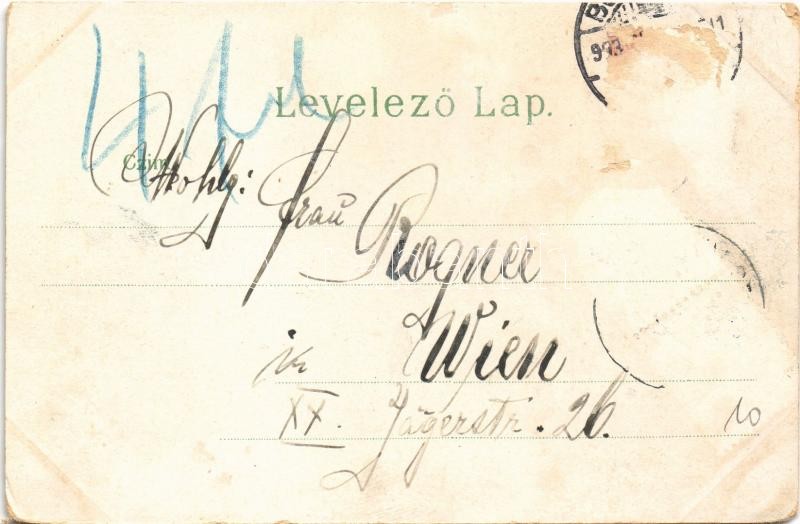 Levelező Lap.
Czim
Wohlg: Frau
Rogner
in Wien
XX. Jägerstr. 26.
10